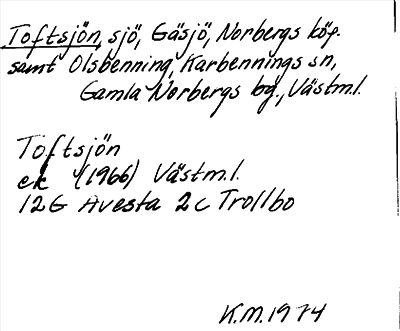 Toftsjön, sjö, Gäsjö, Norbergs köp.
samt Olsbenning, Karbennings sn,
Gamla Norbergs bg., Västm.l.
Toftsjön
ek (1966) Västm.l.
12G Avesta 2c Trollbo
K.M.1974